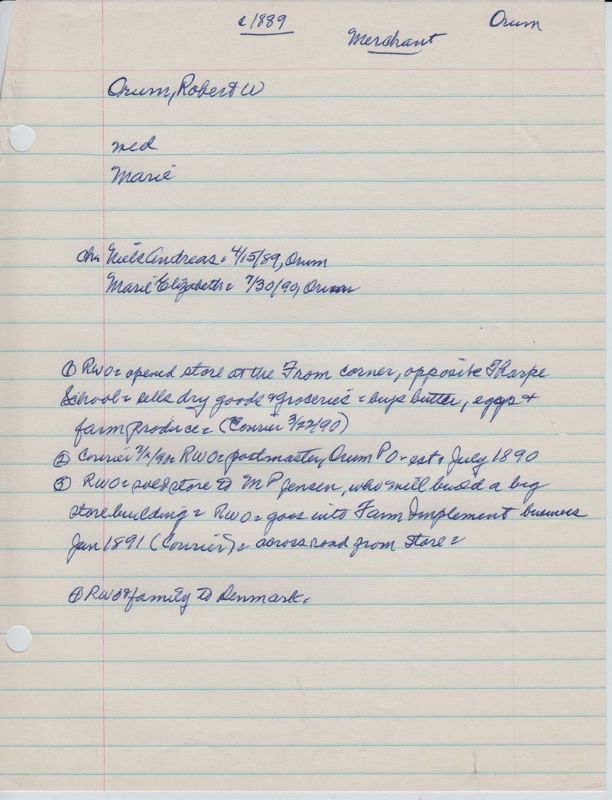 c1889
Merchant
Orum
Orum, Robert W
md
Marie
chn Niels Andreas = 4/15/89, Orum
Marie Elizabeth = 7/30/90, Orum
① RWO = opened store at the From corner, opposite Tharpe
School = sells dry goods & groceries = buys butter, eggs &
farm produce = (Courier 3/22/90)
② Courier RWO = postmaster, Orum PO - est July 1890
③ RWO = sold store to MP Jensen, who will build a big
store building = RWO = goes into Farm Implement business
Jan 1891 (Courier) = across road from store =
④ RWO & family to Denmark.